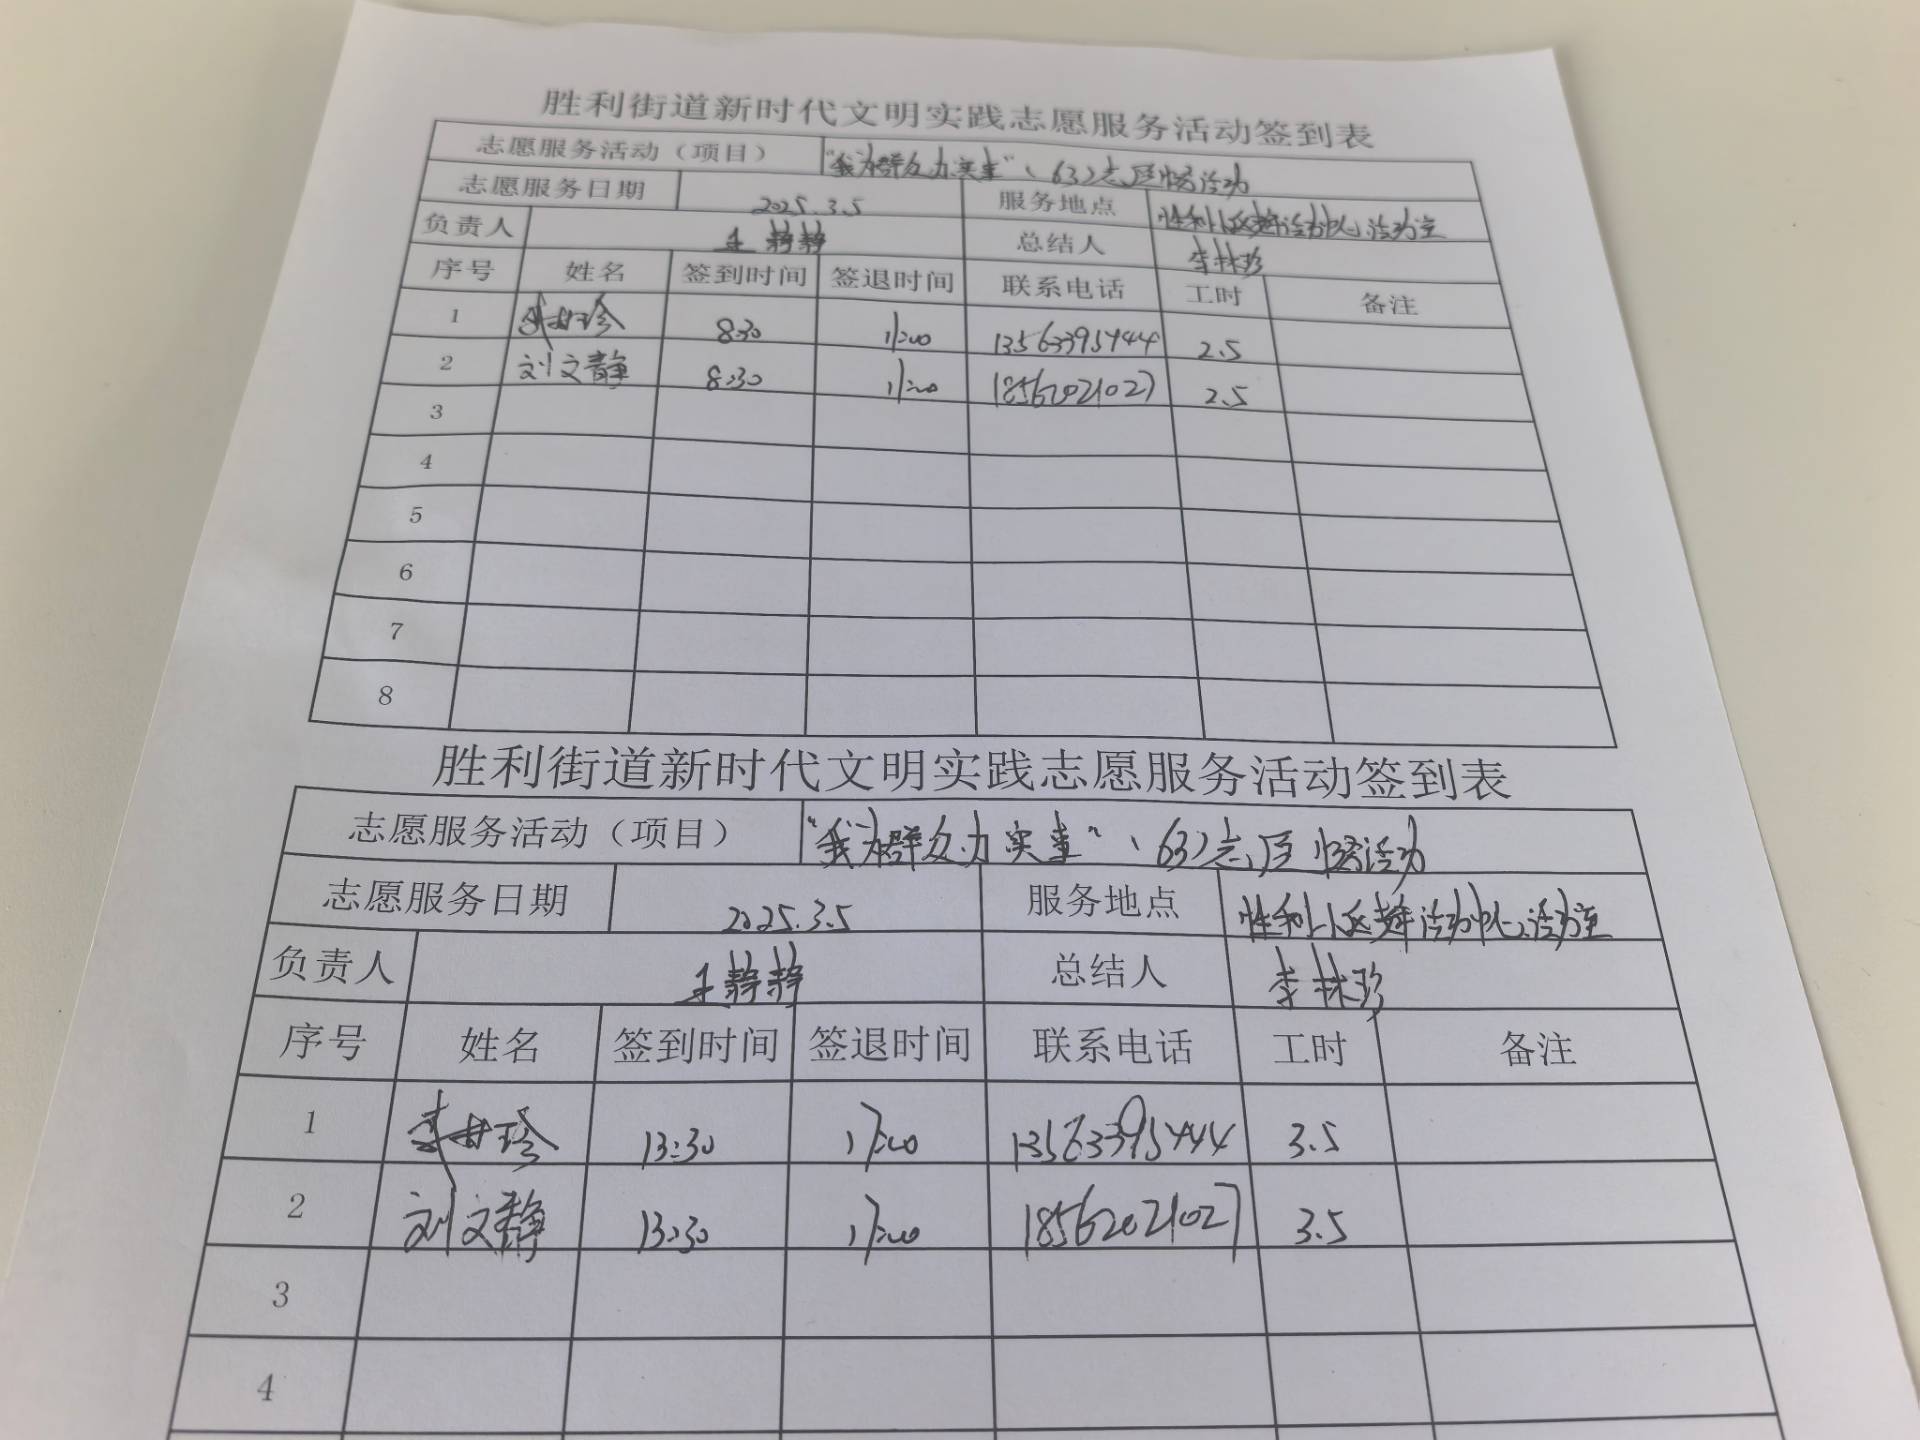 胜利街道新时代文明实践志愿服务活动签到表
志愿服务活动（项目） “我为群众办实事”、632志愿服务活动
志愿服务日期 2025.3.5 服务地点 胜利小区老年活动中心活动室
负责人 王静静 总结人 李林珍
序号 姓名 签到时间 签退时间 联系电话 工时 备注
1 李林珍 8:30 11:00 13563395444 2.5
2 刘文静 8:30 11:00 18562021027 2.5
3
4
5
6
7
8
胜利街道新时代文明实践志愿服务活动签到表
志愿服务活动（项目） “我为群众办实事”、632志愿服务活动
志愿服务日期 2025.3.5 服务地点 胜利小区老年活动中心活动室
负责人 王静静 总结人 李林珍
序号 姓名 签到时间 签退时间 联系电话 工时 备注
1 李林珍 13:30 17:00 13563395444 3.5
2 刘文静 13:30 17:00 18562021027 3.5
3
4